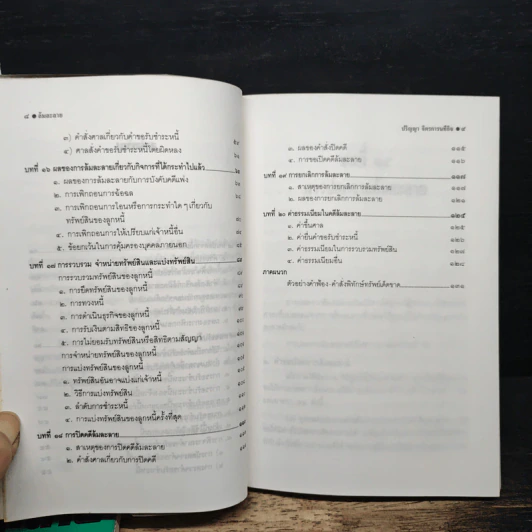 ๘ ● ล้มละลาย
๓) คำสั่งศาลเกี่ยวกับคำขอรับชำระหนี้
๔) ศาลสั่งคำขอรับชำระหนี้โดยผิดหลง
บทที่ ๑๖ ผลของการล้มละลายเกี่ยวกับกิจการที่ได้กระทำไปแล้ว
๑. ผลของการล้มละลายกับการบังคับคดีแพ่ง
๒. การเพิกถอนการฉ้อฉล
๓. การเพิกถอนการโอนหรือการกระทำใด ๆ เกี่ยวกับ
ทรัพย์สินของลูกหนี้
๔. การเพิกถอนการให้เปรียบแก่เจ้าหนี้อื่น
๕. ข้อยกเว้นในการคุ้มครองบุคคลภายนอก
บทที่ ๑๗ การรวบรวม จำหน่ายทรัพย์สินและแบ่งทรัพย์สิน
การรวบรวมทรัพย์สินของลูกหนี้
๑. การยึดทรัพย์สินของลูกหนี้
๒. การทวงหนี้
๓. การดำเนินธุรกิจของลูกหนี้
๔. การรับเงินตามสิทธิของลูกหนี้
๕. การไม่ยอมรับทรัพย์สินหรือสิทธิตามสัญญา
การจำหน่ายทรัพย์สินของลูกหนี้
การแบ่งทรัพย์สินของลูกหนี้
๑. ทรัพย์สินอันอาจแบ่งแก่เจ้าหนี้
๒. วิธีการแบ่งทรัพย์สิน
๓. ลำดับการชำระหนี้
๔. การแบ่งทรัพย์สินของลูกหนี้ครั้งที่สุด
บทที่ ๑๘ การปิดคดีล้มละลาย
๑. สาเหตุของการปิดคดีล้มละลาย
๒. คำสั่งศาลเกี่ยวกับการปิดคดี
ปริญญา จิตรการนทีกิจ ● ๙
๓. ผลของคำสั่งปิดคดี ๑๑๕
๔. การขอเปิดคดีล้มละลาย ๑๑๕
บทที่ ๑๙ การยกเลิกการล้มละลาย ๑๑๗
๑. สาเหตุของการยกเลิกการล้มละลาย ๑๑๗
๒. ผลของการยกเลิกการล้มละลาย
บทที่ ๒๐ ค่าธรรมเนียมในคดีล้มละลาย ๑๒๕
๑. ค่าขึ้นศาล ๑๒๕
๒. ค่ายื่นคำขอรับชำระหนี้
๓. ค่าธรรมเนียมในการรวบรวมทรัพย์สิน
๔. ค่าธรรมเนียมอื่น
ภาคผนวก
ตัวอย่างคำฟ้อง-คำสั่งพิทักษ์ทรัพย์เด็ดขาด ๑๓๑